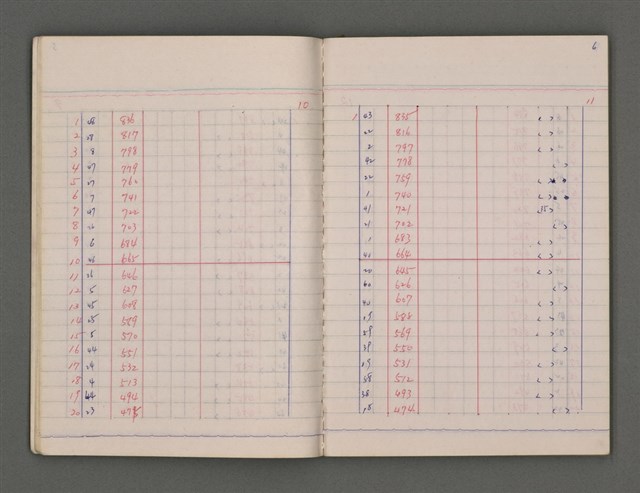 10
1 836
2 817
3 8 798
4 47 779
5 27 760
6 7 741
7 47 722
8 703
9 6 684
10 26 665
11 26 646
12 5 627
13 45 608
14 25 589
15 5 570
16 44 551
17 24 532
18 4 513
19 44 494
20 23 475
6
11
1 43 835 < >
22 816 < >
2 797 < >
42 778 < >
22 759 < >
1 740 < >
41 721 15>
21 702 < >
1 683 < >
40 664 < >
20 645 < >
60 626 < >
40 607 < >
19 588 < >
59 569 < >
39 550 < >
19 531 < >
58 512 < >
38 493 < >
18 474 < >